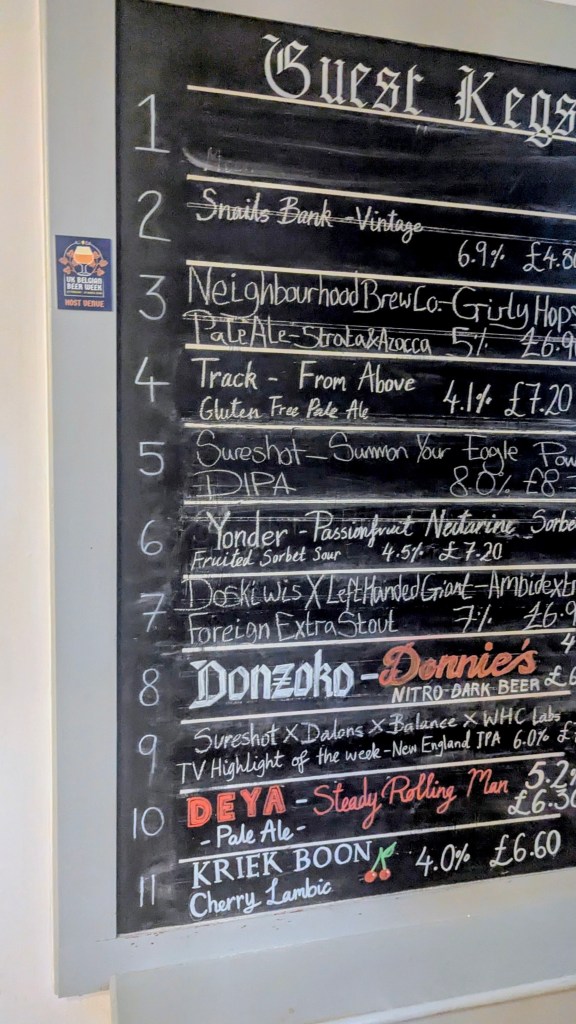 Guest Kegs
1
2 Snails Bank - Vintage
6.9% £4.80
3 Neighbourhood Brew Co. - Girly Hops
Pale Ale - Strata & Azacca 5% £6.9
4 Track - From Above
Gluten Free Pale Ale 4.1% £7.20
5 Sureshot - Summon Your Eagle Pow
DIPA 8.0% £8
6 Yonder - Passionfruit Nectarine Sorbe
Fruited Sorbet Sour 4.5% £7.20
7 Doskiwis X Left Handed Giant - Ambidextr
Foreign Extra Stout 7% £6.9
8 DONZOKO - Donnie's 4
NITRO DARK BEER £6
9 Sureshot X Dalons X Balance X WHC Labs
TV Highlight of the week - New England IPA 6.0% £7
10 DEYA - Steady Rolling Man 5.2%
- Pale Ale - £6.50
11 KRIEK BOON 4.0% £6.60
Cherry Lambic
UK BELGIAN
BEER WEEK
HOST VENUE